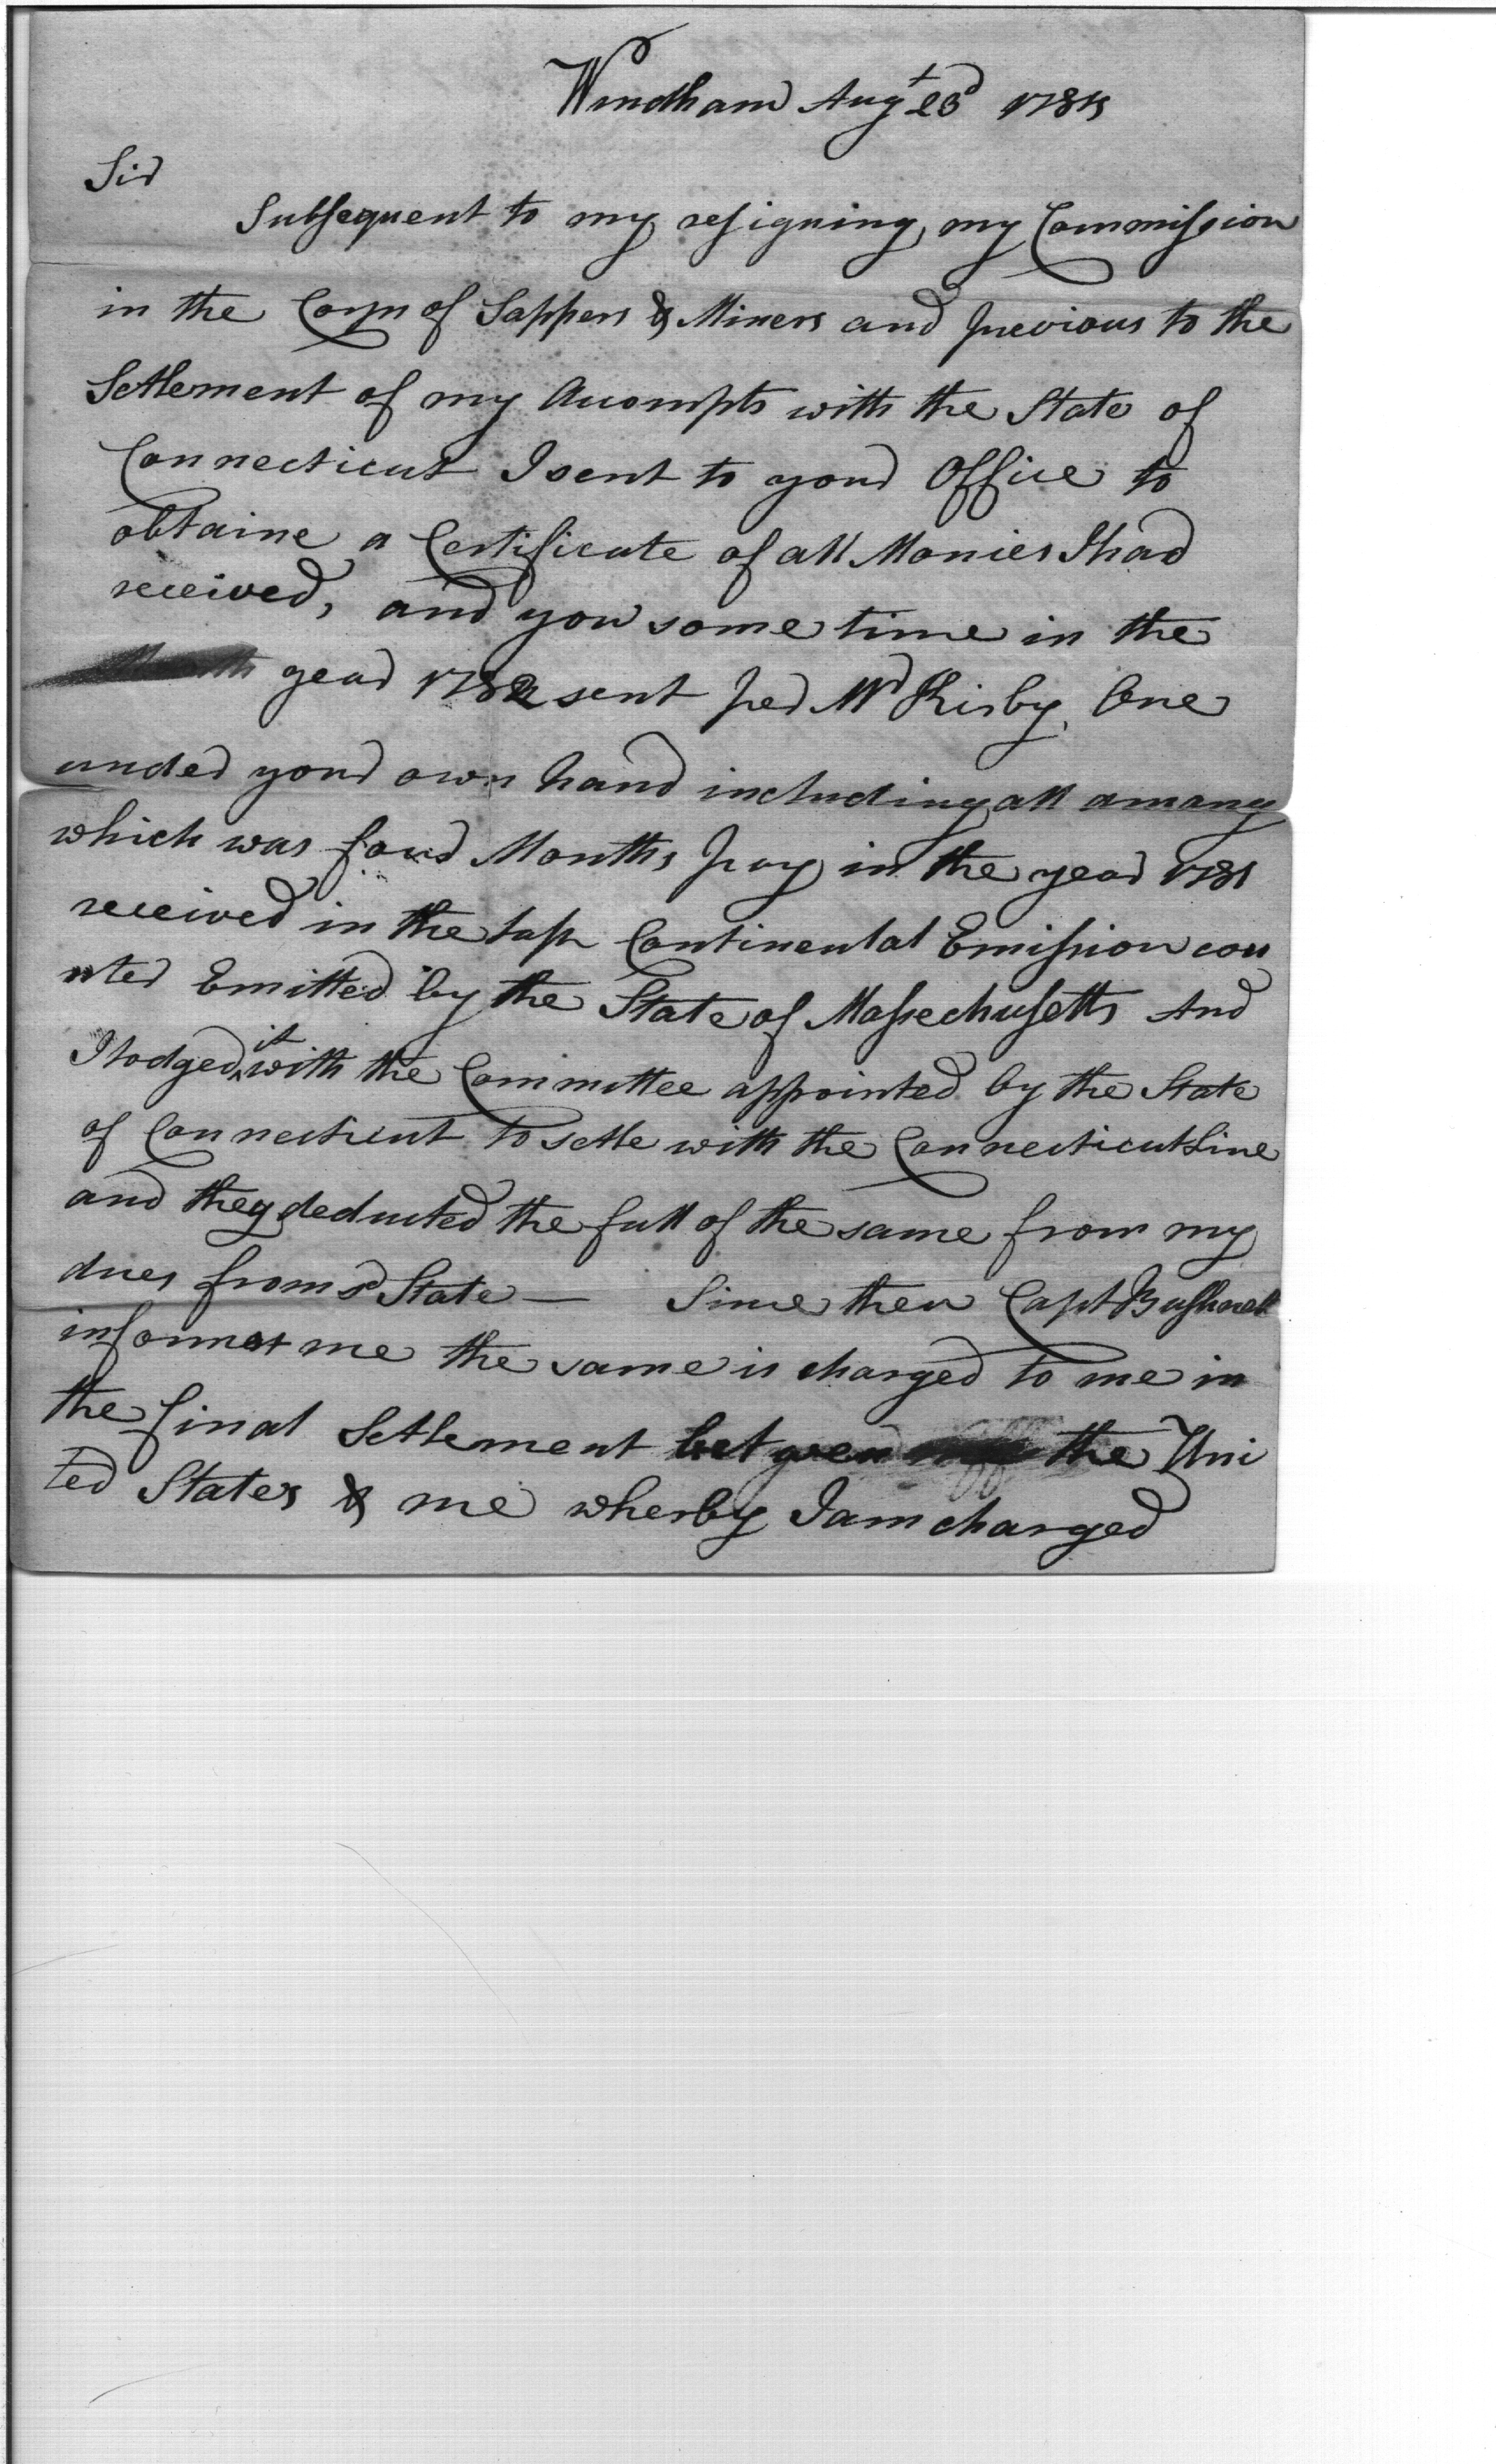 Windham Augt 23d 1784
Sir
Subsequent to my resigning my Commission
in the Corps of Sappers & Miners and previous to the
Settlement of my Accompts with the State of
Connecticut I sent to your Office to
obtaine a Certificate of all Monies I had
received, and you some time in the
year 1782 sent per Mr Kirby One
under your own hand including all among
which was four Months pay in the year 1781
received in the last Continental Emission cou
nter Emitted by the State of Massechusetts And
I lodged it with the Committee appointed by the State
of Connecticut to setle with the Connecticut Line
and they deducted the full of the same from my
dues from sd State — Since then Capt Bushnell
informes me the same is charged to me in
the final Setlement between the Uni
ted States & me wherby I am charged